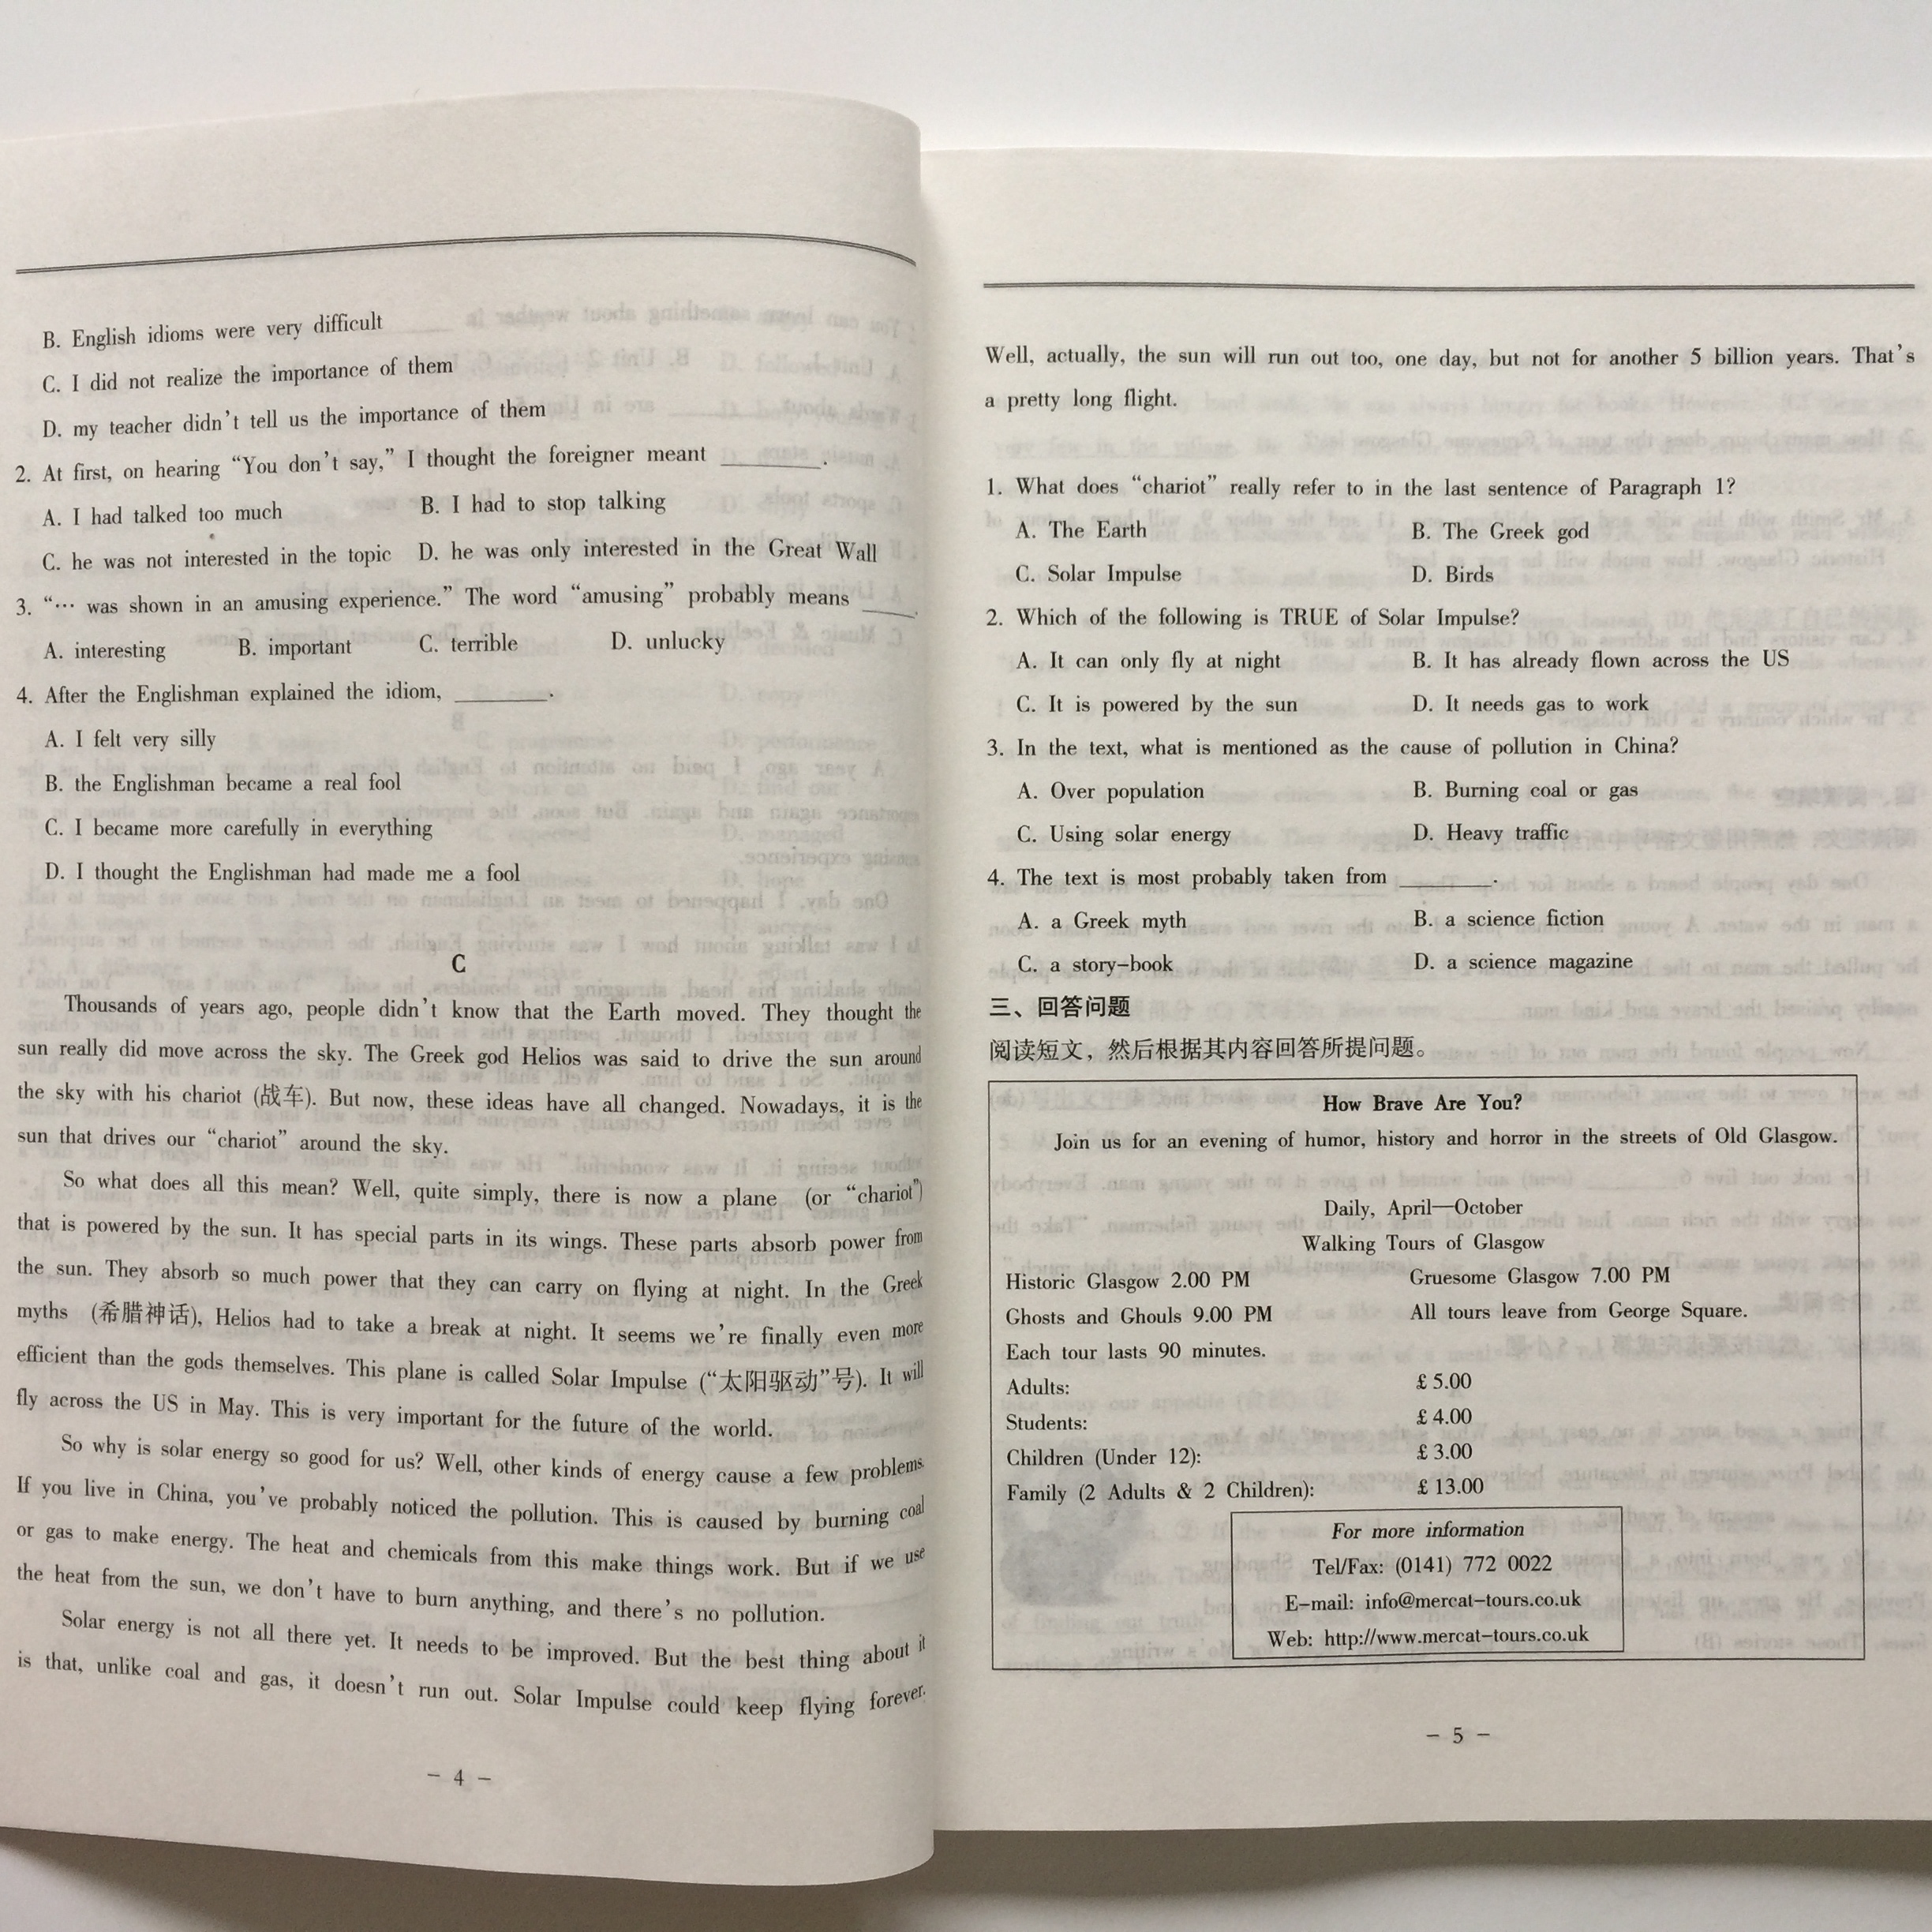 B. English idioms were very difficult
C. I did not realize the importance of them
D. my teacher didn't tell us the importance of them
2. At first, on hearing “You don't say,” I thought the foreigner meant ________.
A. I had talked too much B. I had to stop talking
C. he was not interested in the topic D. he was only interested in the Great Wall
3. “… was shown in an amusing experience.” The word “amusing” probably means ____.
A. interesting B. important C. terrible D. unlucky
4. After the Englishman explained the idiom, ________.
A. I felt very silly
B. the Englishman became a real fool
C. I became more carefully in everything
D. I thought the Englishman had made me a fool
C
Thousands of years ago, people didn't know that the Earth moved. They thought the
sun really did move across the sky. The Greek god Helios was said to drive the sun around
the sky with his chariot (战车). But now, these ideas have all changed. Nowadays, it is the
sun that drives our “chariot” around the sky.
So what does all this mean? Well, quite simply, there is now a plane (or “chariot”)
that is powered by the sun. It has special parts in its wings. These parts absorb power from
the sun. They absorb so much power that they can carry on flying at night. In the Greek
myths (希腊神话), Helios had to take a break at night. It seems we're finally even more
efficient than the gods themselves. This plane is called Solar Impulse (“太阳驱动”号). It will
fly across the US in May. This is very important for the future of the world.
So why is solar energy so good for us? Well, other kinds of energy cause a few problems.
If you live in China, you've probably noticed the pollution. This is caused by burning coal
or gas to make energy. The heat and chemicals from this make things work. But if we use
the heat from the sun, we don't have to burn anything, and there's no pollution.
Solar energy is not all there yet. It needs to be improved. But the best thing about it
is that, unlike coal and gas, it doesn't run out. Solar Impulse could keep flying forever.
– 4 –
Well, actually, the sun will run out too, one day, but not for another 5 billion years. That's
a pretty long flight.
1. What does “chariot” really refer to in the last sentence of Paragraph 1?
A. The Earth B. The Greek god
C. Solar Impulse D. Birds
2. Which of the following is TRUE of Solar Impulse?
A. It can only fly at night B. It has already flown across the US
C. It is powered by the sun D. It needs gas to work
3. In the text, what is mentioned as the cause of pollution in China?
A. Over population B. Burning coal or gas
C. Using solar energy D. Heavy traffic
4. The text is most probably taken from ________.
A. a Greek myth B. a science fiction
C. a story–book D. a science magazine
三、回答问题
阅读短文，然后根据其内容回答所提问题。
How Brave Are You?
Join us for an evening of humor, history and horror in the streets of Old Glasgow.
Daily, April—October
Walking Tours of Glasgow
Historic Glasgow 2.00 PM Gruesome Glasgow 7.00 PM
Ghosts and Ghouls 9.00 PM All tours leave from George Square.
Each tour lasts 90 minutes.
Adults: £5.00
Students: £4.00
Children (Under 12): £3.00
Family (2 Adults & 2 Children): £13.00
For more information
Tel/Fax: (0141) 772 0022
E–mail: info@mercat–tours.co.uk
Web: http://www.mercat–tours.co.uk
– 5 –